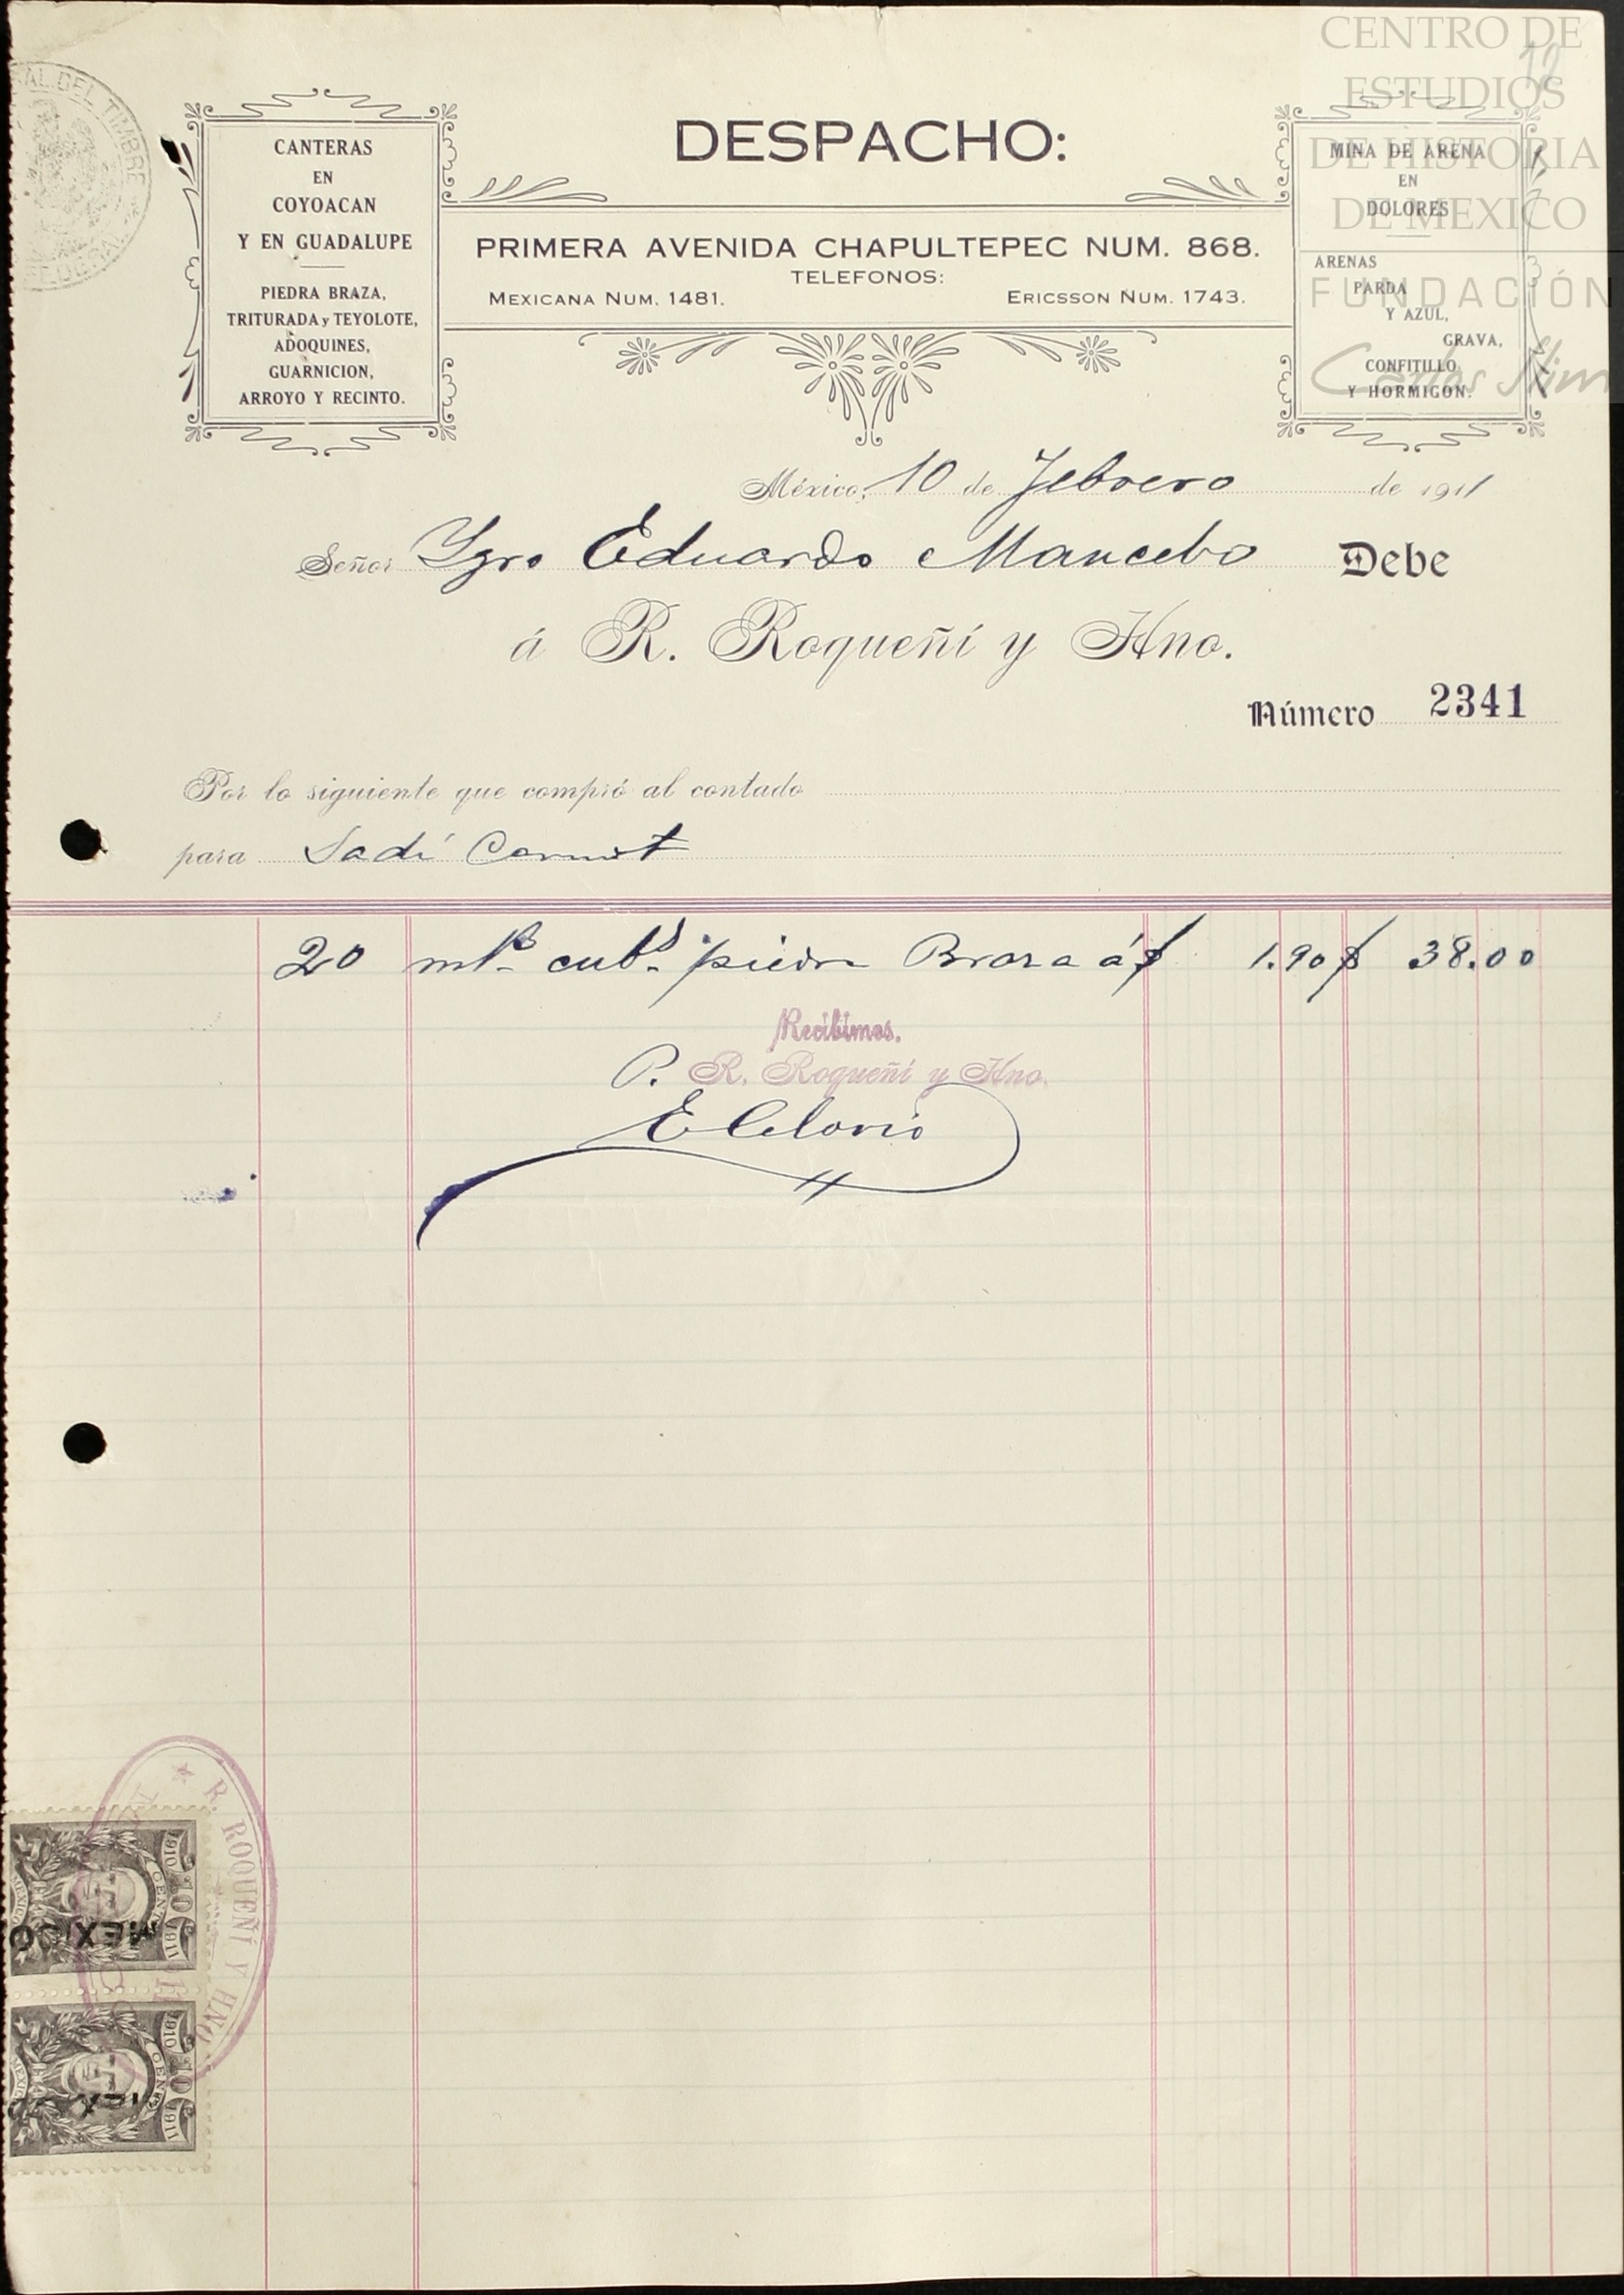 CENTRO DE
ESTUDIOS
DE HISTORIA
DE MEXICO
FUNDACIÓN
Carlos Slim
AL DEL TIMBRE
CANTERAS
EN
COYOACAN
Y EN GUADALUPE
PIEDRA BRAZA,
TRITURADA y TEYOLOTE,
ADOQUINES,
GUARNICION,
ARROYO Y RECINTO.
DESPACHO:
PRIMERA AVENIDA CHAPULTEPEC NUM. 868.
TELEFONOS:
MEXICANA NUM. 1481. ERICSSON NUM. 1743.
MINA DE ARENA
EN
DOLORES
ARENAS
PARDA
Y AZUL,
GRAVA,
CONFITILLO
Y HORMIGON.
México, 10 de Febrero de 1911
Señor Ygro Eduardo Mancebo Debe
á R. Roqueñí y Hno.
Número 2341
Por lo siguiente que compró al contado
para Sadí Carnot
20 mts. cubs. piedra Braza á $ 1.90 $ 38.00
Recibimos.
P. R. Roqueñí y Hno.
E Celorio
R. ROQUEÑI Y HNO
1910 10 1911
CENTS
MEXICO
1910 10 1911
CENTS